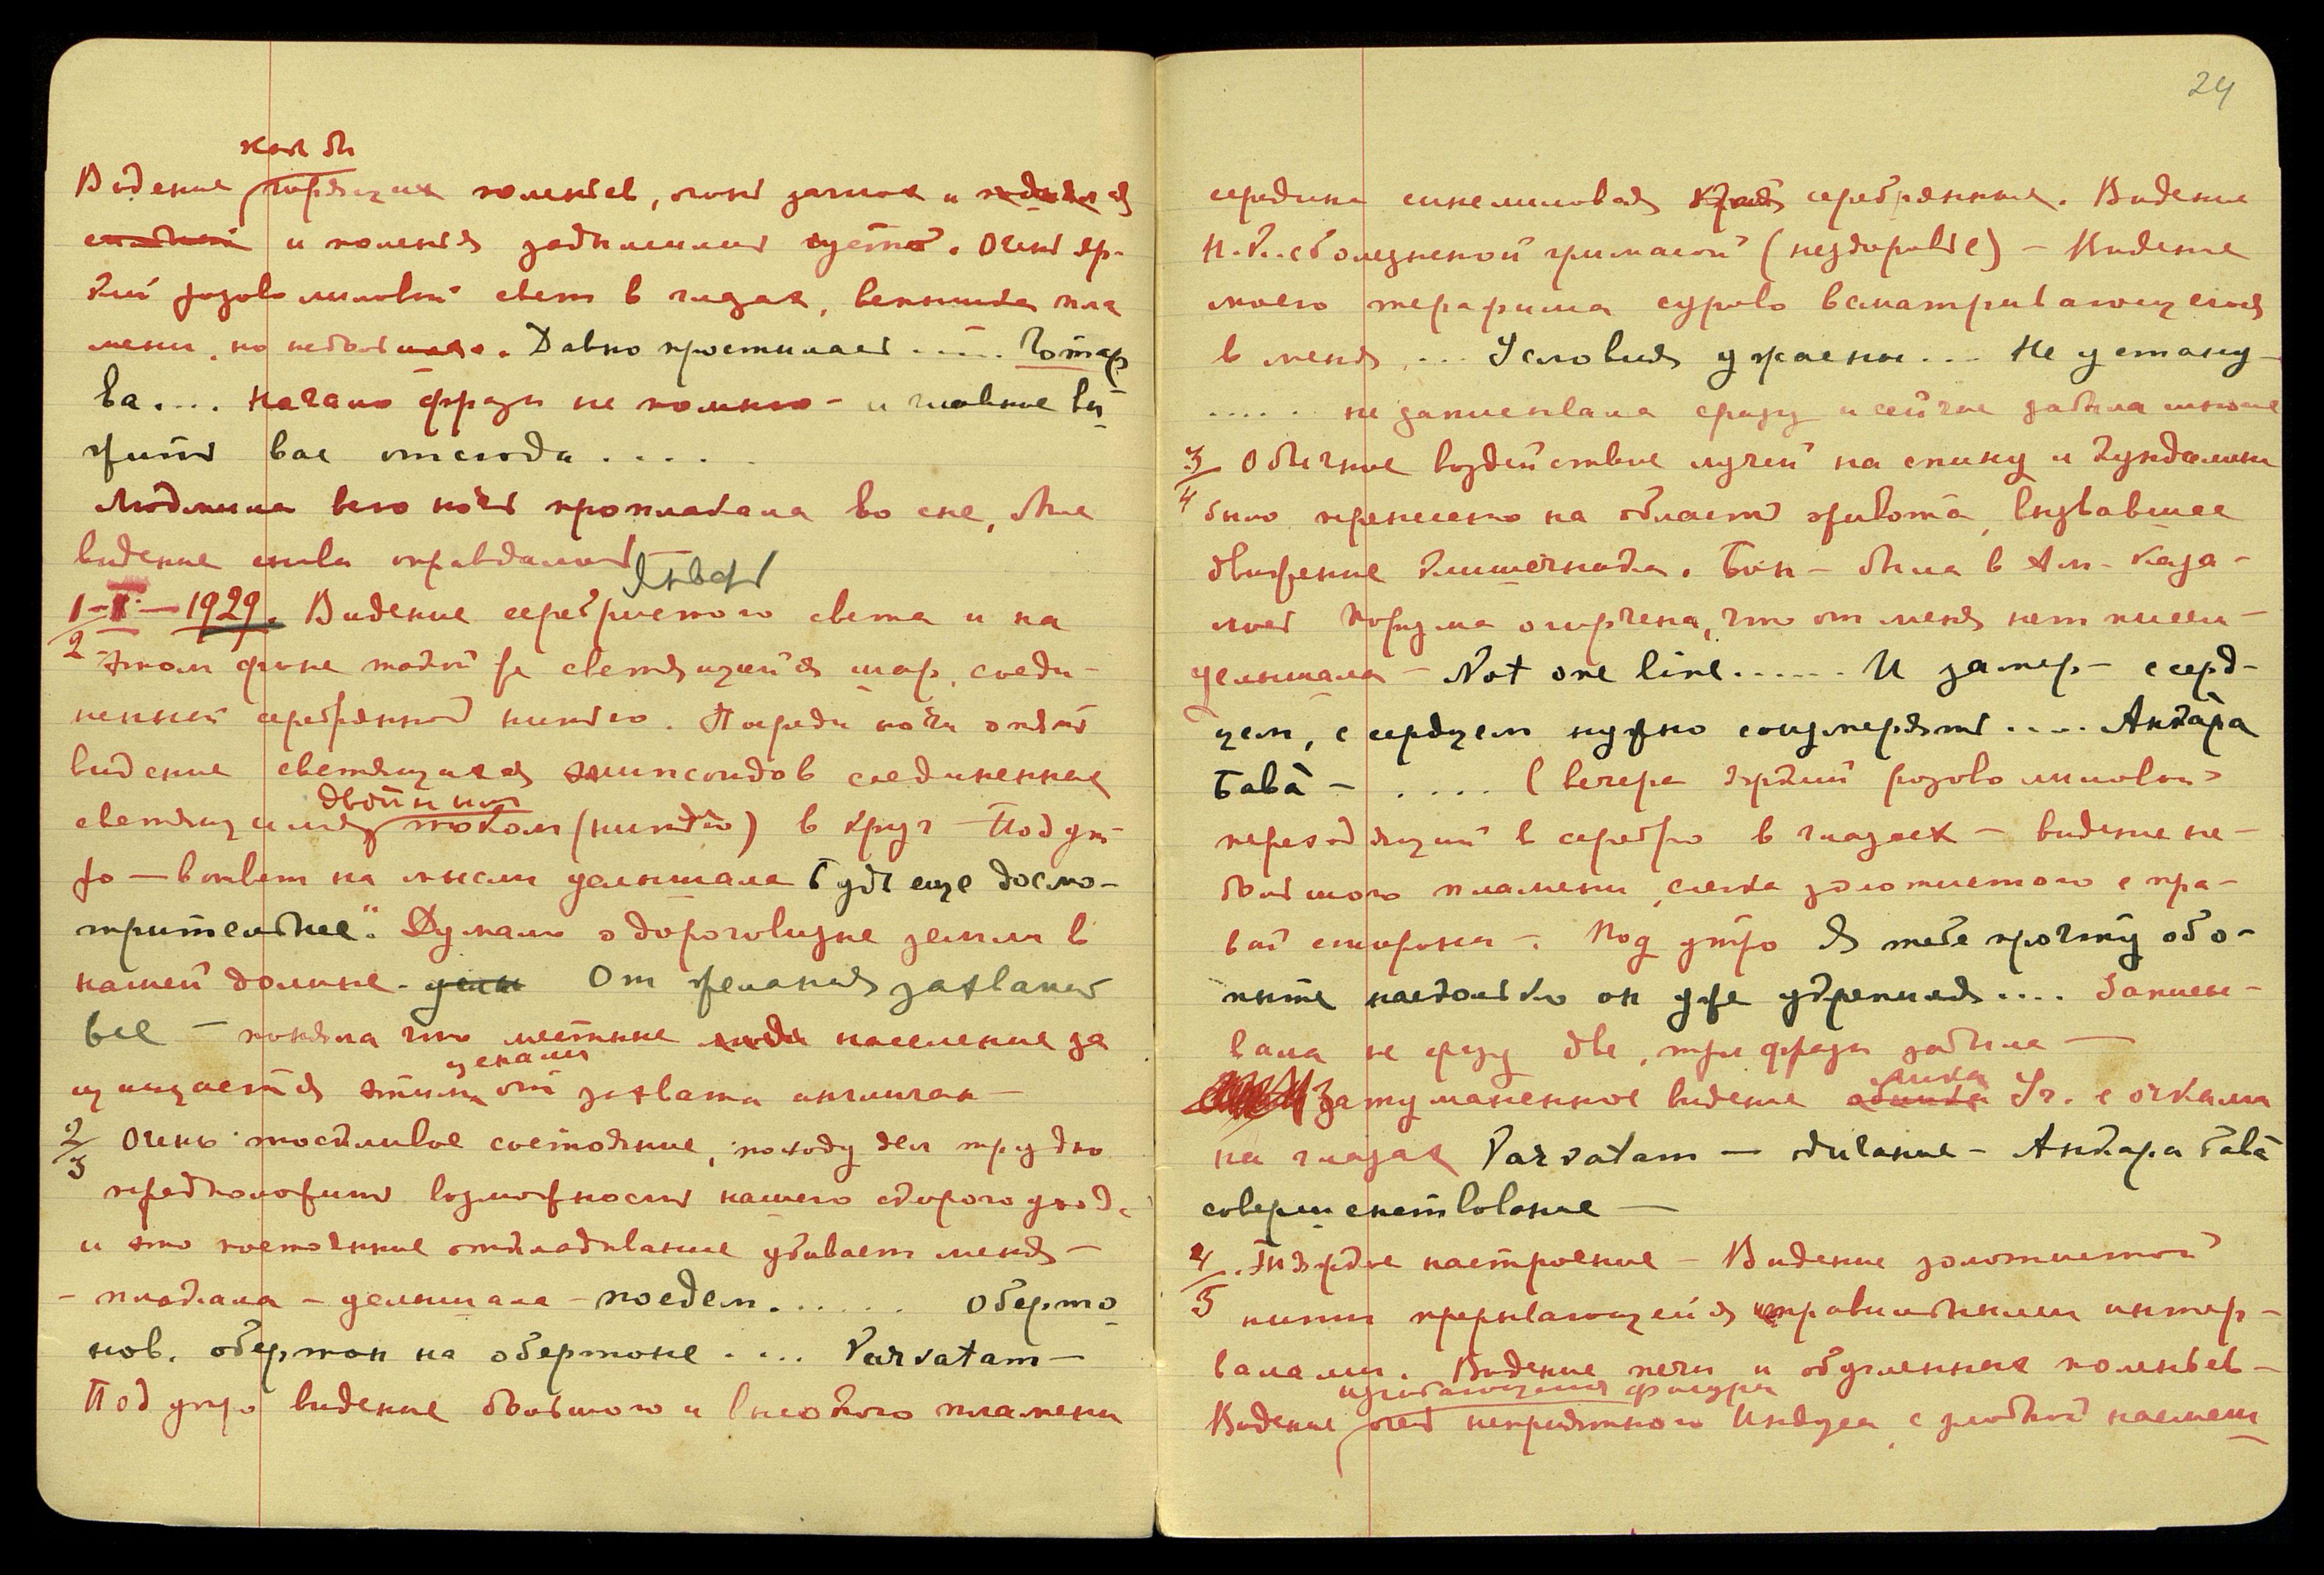 как бы
Видение горящих поленьев, огонь затих и
и поленья задымились густо. Очень яр-
кий розово лиловый свет в глазах, вспышка пла
мени, но небольшая. Давно простилает ..... Готар
ва .... Начало фразы не помню - и главное вы
жить вас отсюда ....
Людмила всю ночь проплакала во сне, Мое
видение снова оправдалось
Январь
1-I-1929. Видение серебристого света и на
2 этом фоне такой же светящийся шар, соеди-
ненный серебрянной нитью. Посреди ночи опять
видение светящихся эллипсоидов соединенных
двойным
светящимся током (нитью) в круг - Под ут-
ро - в ответ на мысли услышала будь еще досмо-
трительнее". Думаю о дороговизне земли в
нашей долине - От желания захвата
все - поняла что местные люди население за
ценами
щищается этими от захвата англичан -
2/3 Очень тоскливое состояние, по ходу дел трудно
предположить возможность нашего скорого уезд.
и это постоянное откладывание убивает меня -
- плакала - услышала - поедем ...... оберто
нов. обертон на обертоне .... Parvatam -
Под утро видение большого и высокого пламени
24
середина синелиловая края серебрянные. Видение
Н.К. с болезненной гримасой (нездоровье) - Видение
моего терафима сурово всматривающегося
в меня ... Условия ужасны ... Не устану -
..... не записывала сразу и сейчас забыла многое
3/4 Обычное воздействие лучей на спину и Кундалини
было перенесено на область живота, вызвавшее
движение кишечника. Был - была в Ам. каза-
лось Норума огорчена, что от меня нет писем -
услышала - Not one line ...... И замер - с серд-
цем, с сердцем нужно соизмерять .... Анкара
Бава - .... С вечера яркий розово лиловый
переходящий в серебро в глазах - видение не-
большого пламени, слегка золотистого с пра-
вой стороны -. Под утро Я тебе прочту обо-
настолько он уже укрепился .... Записы-
вала не сразу две, три фразы забыла -
лика
Затуманенное видение облика Уч. с очками
на глазах Parvatam - одичание - Анкара бава
совершенствование -
4/5 настроение - Видение золотистой
нити прерывающейся неправильными интер-
валами. Видение печи и обугленных поленьев -
изгибающаяся фигура
Видение очень неприятного Индуса, с злобной насмеш